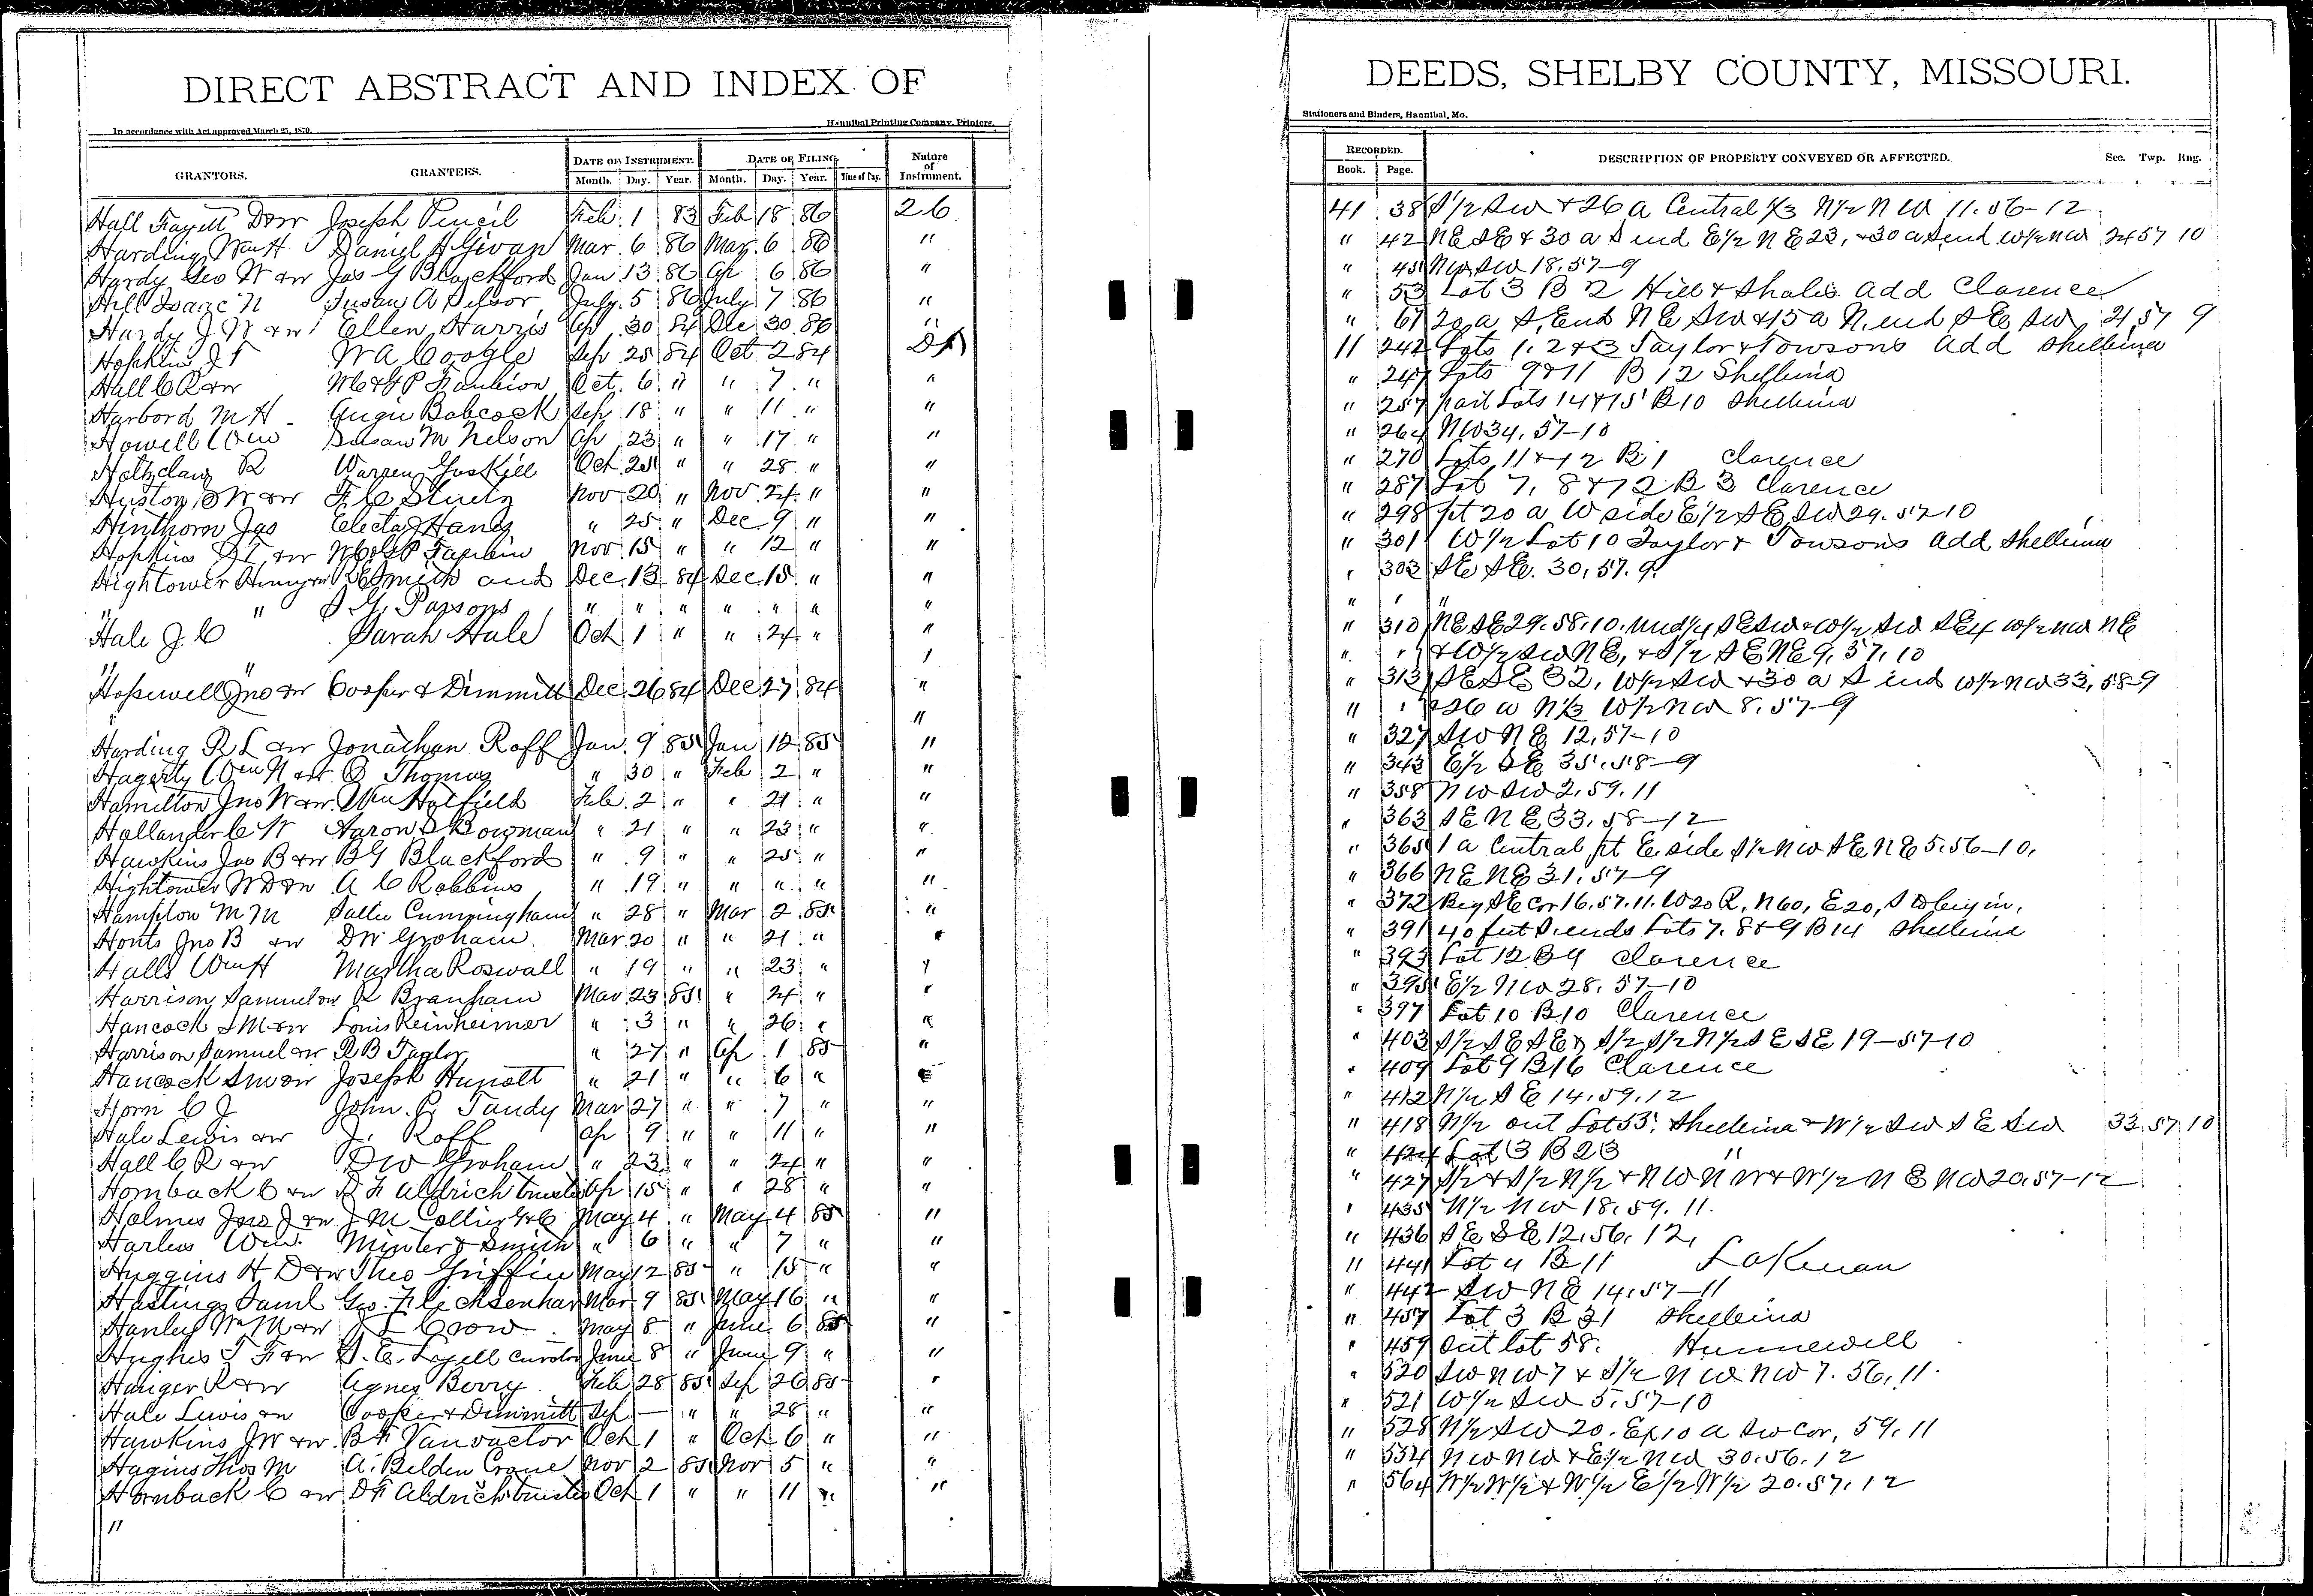 DIRECT ABSTRACT AND INDEX OF
In accordance with Act approved March 25, 1870.
Hannibal Printing Company, Printers.
GRANTORS. GRANTEES. DATE OF INSTRUMENT. DATE OF FILING. Nature of Instrument.
Month. Day. Year. Month. Day. Year. Time of Day.
Hall Fayett D &w Joseph Pencil Feb 1 83 Feb 18 86 26
Harding Wm H Daniel A Givan Mar 6 86 Mar 6 86 "
Hardy Geo W &w Jas G Blackford Jan 13 86 Ap 6 86 "
Hill Isaac N Susan A Selsor July 5 86 July 7 86 "
Hardy J W &w Ellen Harris Ap 30 84 Dec 30 86 "
Hopkins J T W A Coogle Sep 25 84 Oct 2 84
Hall C R &w Oct 6 " " 7 " "
Harbord M H Angie Babcock Sep 18 " " 11 " "
Howell Wm Susan M Nelson Ap 23 " " 17 " "
Holtzclaw R Warren Gaskill Oct 25 " " 28 " "
Huston S W &w F C Nov 20 " Nov 24 " "
Hinthorn Jas Electa J Haney " 25 " Dec 9 " "
Hopkins &w Nov 15 " " 12 " "
Hightower Henry &w Smith and Dec 13 84 Dec 15 " "
" " J G Parsons " " " " " " "
Hale J C Sarah Hale Oct 1 " " 24 " "
" "
Hopewell Jno &w Cooper & Dimmitt Dec 26 84 Dec 27 84 "
"
Harding R L &w Jonathan Roff Jan 9 85 Jan 12 85 "
Hagerty Wm N &w B Thomas " 30 " Feb 2 " "
Hamilton Jno W &w Wm Hatfield Feb 2 " " 21 " "
Hollander C W Aaron D Bowman " 21 " " 23 " "
Hawkins Jas B &w B G Blackford " 9 " " 25 " "
Hightower W D &w A C Robbins " 19 " " " " "
Hampton M M Sallie Cunningham " 28 " Mar 2 85 "
Honts Jno B &w D W Groham Mar 20 " " 21 " "
Halls Wm H Martha Roswall " 19 " " 23 " "
Harrison Samuel &w R Branham Mar 23 85 " 24 " "
Hancock S M &w Louis Reinheimer " 3 " " 26 " "
Harrison Samuel &w R B Taylor " 27 " Ap 1 85 "
Hancock S M &w Joseph Hunolt " 21 " " 6 " "
Horn C J John Tandy Mar 27 " " 7 " "
Hale Lewis &w J. Roff Ap 9 " " 11 " "
Hall C R &w D W Groham " 23 " " 24 " "
Hornback C &w D F Aldrich trustee Ap 15 " " 28 " "
Holmes Jno J &w J M Collier May 4 " May 4 85 "
Harless Wm Minter & Smith " 6 " " 7 " "
Huggins H D &w Theo Griffin May 12 85 " 15 " "
Hastings Saml Geo. Flechsenhar Mar 9 85 May 16 " "
Hanley W M &w J L Crow May 8 " June 6 85 "
Hughes T F &w Lyell Curator June 8 " June 9 " "
Hanger R &w Agnes Berry Feb 28 85 Sep 26 85 "
Hale Lewis &w Cooper & Dimmitt Sep — " " 28 " "
Hawkins J W &w B F Vanvactor Oct 1 " Oct 6 " "
Hagins Thos M A. Belden Crane Nov 2 85 Nov 5 " "
Hornback C &w D F Aldrich trustee Oct 1 " " 11 " "
"
DEEDS, SHELBY COUNTY, MISSOURI.
Stationers and Binders, Hannibal, Mo.
RECORDED. DESCRIPTION OF PROPERTY CONVEYED OR AFFECTED. Sec. Twp. Rng.
Book. Page.
41 38 S 1/2 SW + 26 a Central 1/3 N 1/2 N W 11. 56-12
" 42 NE SE & 30 a S end E 1/2 N E 23, & 30 a S end W 1/2 NW 24 57 10
" 45 NW SW 18. 57-9
" 53 Lot 3 B 2 Hill & Shales add Clarence
" 67 20 a S. End N E SW & 15 a N. end S E SW 21 57 9
11 242 Lots 1. 2 & 3 Taylor & Towsons add Shelbina
" 247 Lots 9 & 11 B 12 Shelbina
" 257 part Lots 14 & 15 B 10 Shelbina
" 264 NW 34. 57-10
" 270 Lots 11 & 12 B 1 Clarence
" 287 Lot 7, 8 & 12 B 3 Clarence
" 298 pt 20 a W side E 1/2 SE SW 29. 57 10
" 301 W 1/2 Lot 10 Taylor & Towsons add Shelbina
" 303 SE SE. 30, 57. 9.
" " "
" 310 NE SE 29. 58. 10. und 1/4 SE SW & W 1/2 SW SE & W 1/2 NW NE
" " & W 1/2 SW NE, & S 1/2 SE NE 9, 57, 10
" 313 SE SE 32, W 1/2 SW & 30 a S end W 1/2 NW 33, 58-9
" " & 26 a N 1/3 W 1/2 NW 8. 57-9
" 327 SW NE 12, 57-10
" 343 E 1/2 SE 35. 58-9
" 358 NW SW 2. 59. 11
" 363 SE NE 33. 58-12
" 365 1 a Central pt E. side S 1/2 NW SE NE 5. 56-10.
" 366 NE NE 31. 57-9
" 372 Beg SE cor 16. 57. 11. W 20 R, N 60, E 20, S to begin,
" 391 40 feet S. ends Lots 7. 8 & 9 B 14 Shelbina
" 393 Lot 12 B 4 Clarence
" 395 E 1/2 NW 28. 57-10
" 397 Lot 10 B 10 Clarence
" 403 S 1/2 SE SE & S 1/2 S 1/2 N 1/2 SE SE 19-57-10
" 409 Lot 9 B 16 Clarence
" 412 N 1/2 SE 14. 59. 12
" 418 N 1/2 out Lot 53. Shelbina & W 1/2 SW SE SW 33 57 10
" 424 Lot 3 B 23 "
" 427 S 1/2 & S 1/2 N 1/2 & NW NW & W 1/2 N E NW 20. 57-12
" 435 N 1/2 NW 18. 59. 11.
" 436 SE SE 12. 56. 12,
" 441 Lot 4 B 11 Lakenan
" 442 SW NE 14. 57-11
" 457 Lot 3 B 31 Shelbina
" 459 Out lot 58. Hunnewell
" 520 SW NW 7 & S 1/2 NW NW 7. 56, 11.
" 521 W 1/2 SW 5. 57-10
" 528 N 1/2 SW 20. Ex 10 a SW Cor, 59. 11
" 554 NW NW & E 1/2 NW 30. 56. 12
" 564 W 1/2 W 1/2 & W 1/2 E 1/2 W 1/2 20. 57. 12